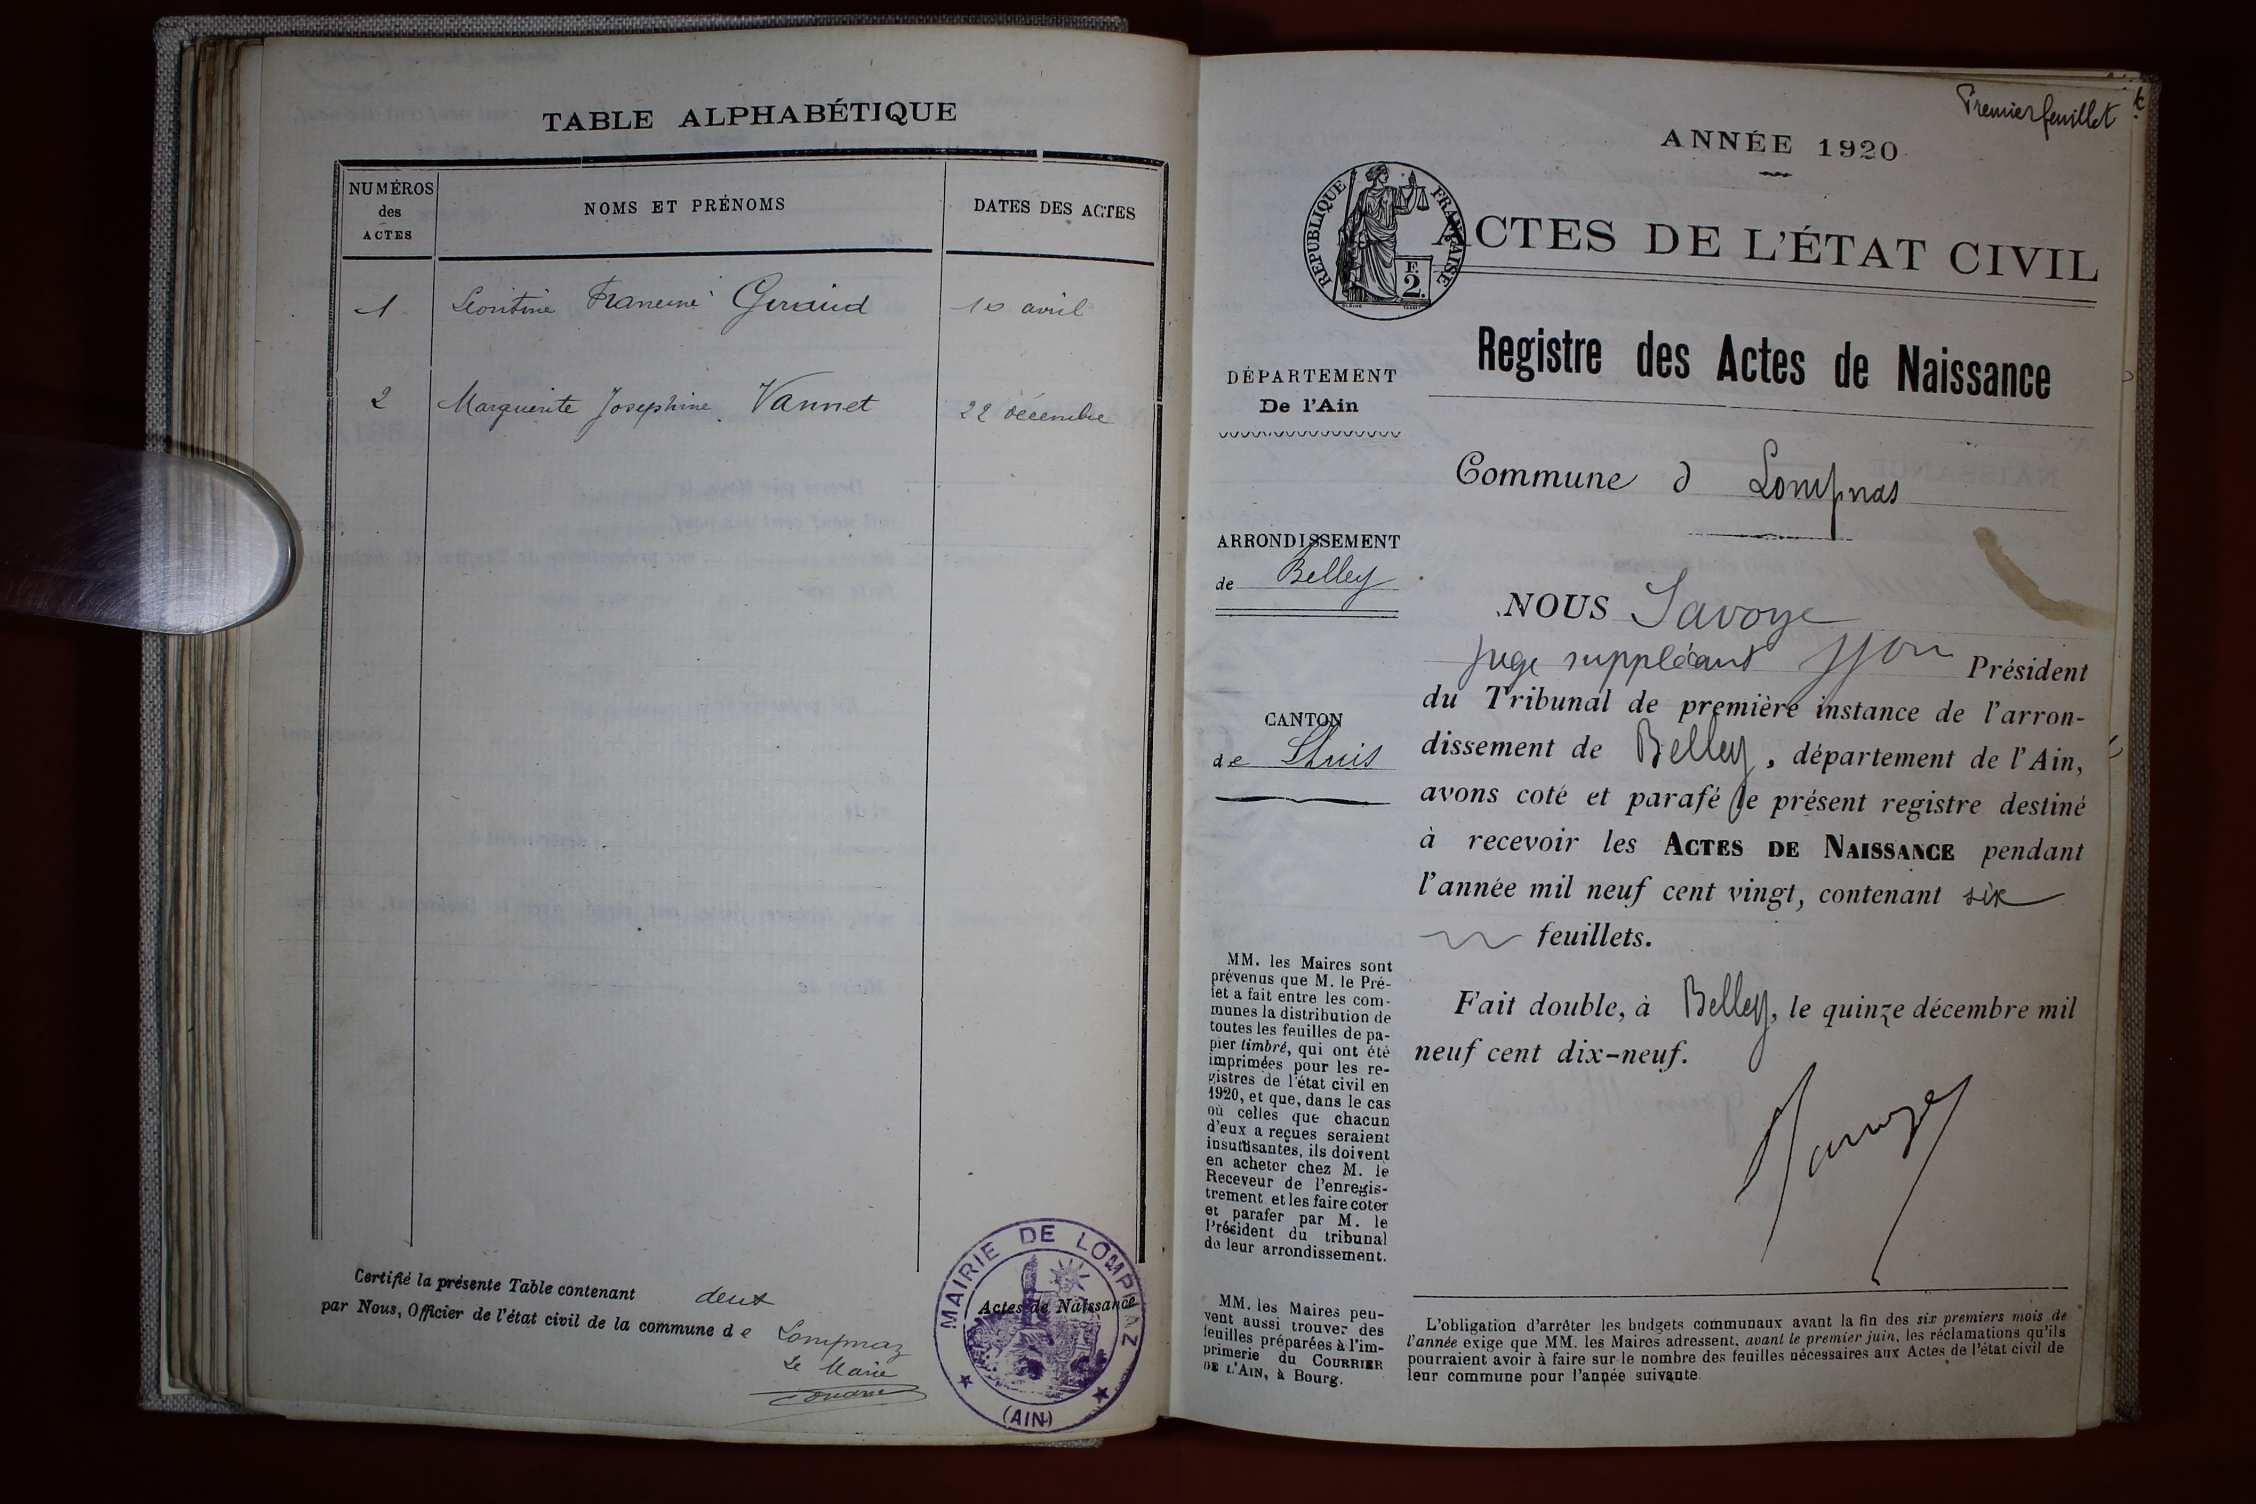 TABLE ALPHABÉTIQUE
NUMÉROS
des
ACTES
NOMS ET PRÉNOMS
DATES DES ACTES
1 Léontine Francine Giraud 10 avril
2 Marguerite Joséphine Vannet 22 décembre
Certifié la présente Table contenant deux Actes de Naissance
par Nous, Officier de l'état civil de la commune de Lompnaz
Le Maire
MAIRIE DE LOMPNAZ
(AIN)
Premier feuillet
ANNÉE 1920
RÉPUBLIQUE FRANÇAISE
F.
2.
ACTES DE L'ÉTAT CIVIL
Registre des Actes de Naissance
DÉPARTEMENT
De l'Ain
Commune d Lompnas
ARRONDISSEMENT
de Belley
CANTON
de Lhuis
MM. les Maires sont
prévenus que M. le Pré-
fet a fait entre les com-
munes la distribution de
toutes les feuilles de pa-
pier timbré, qui ont été
imprimées pour les re-
gistres de l'état civil en
1920, et que, dans le cas
où celles que chacun
d'eux a reçues seraient
insuffisantes, ils doivent
en acheter chez M. le
Receveur de l'enregis-
trement et les faire coter
et parafer par M. le
Président du tribunal
de leur arrondissement.
MM. les Maires peu-
vent aussi trouver des
feuilles préparées à l'im-
primerie du COURRIER
DE L'AIN, à Bourg.
NOUS Savoye
juge suppléant Président
du Tribunal de première instance de l'arron-
dissement de Belley, département de l'Ain,
avons coté et parafé le présent registre destiné
à recevoir les ACTES DE NAISSANCE pendant
l'année mil neuf cent vingt, contenant six
feuillets.
Fait double, à Belley, le quinze décembre mil
neuf cent dix-neuf.
L'obligation d'arrêter les budgets communaux avant la fin des six premiers mois de
l'année exige que MM. les Maires adressent, avant le premier juin, les réclamations qu'ils
pourraient avoir à faire sur le nombre des feuilles nécessaires aux Actes de l'état civil de
leur commune pour l'année suivante.